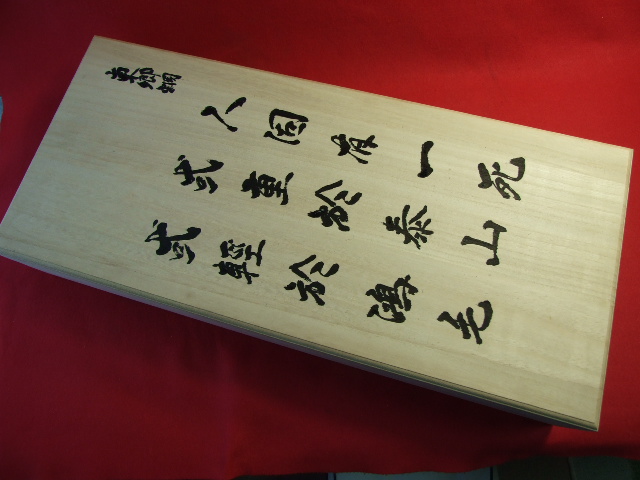 人固有一死
或重於泰山
或輕於鴻毛